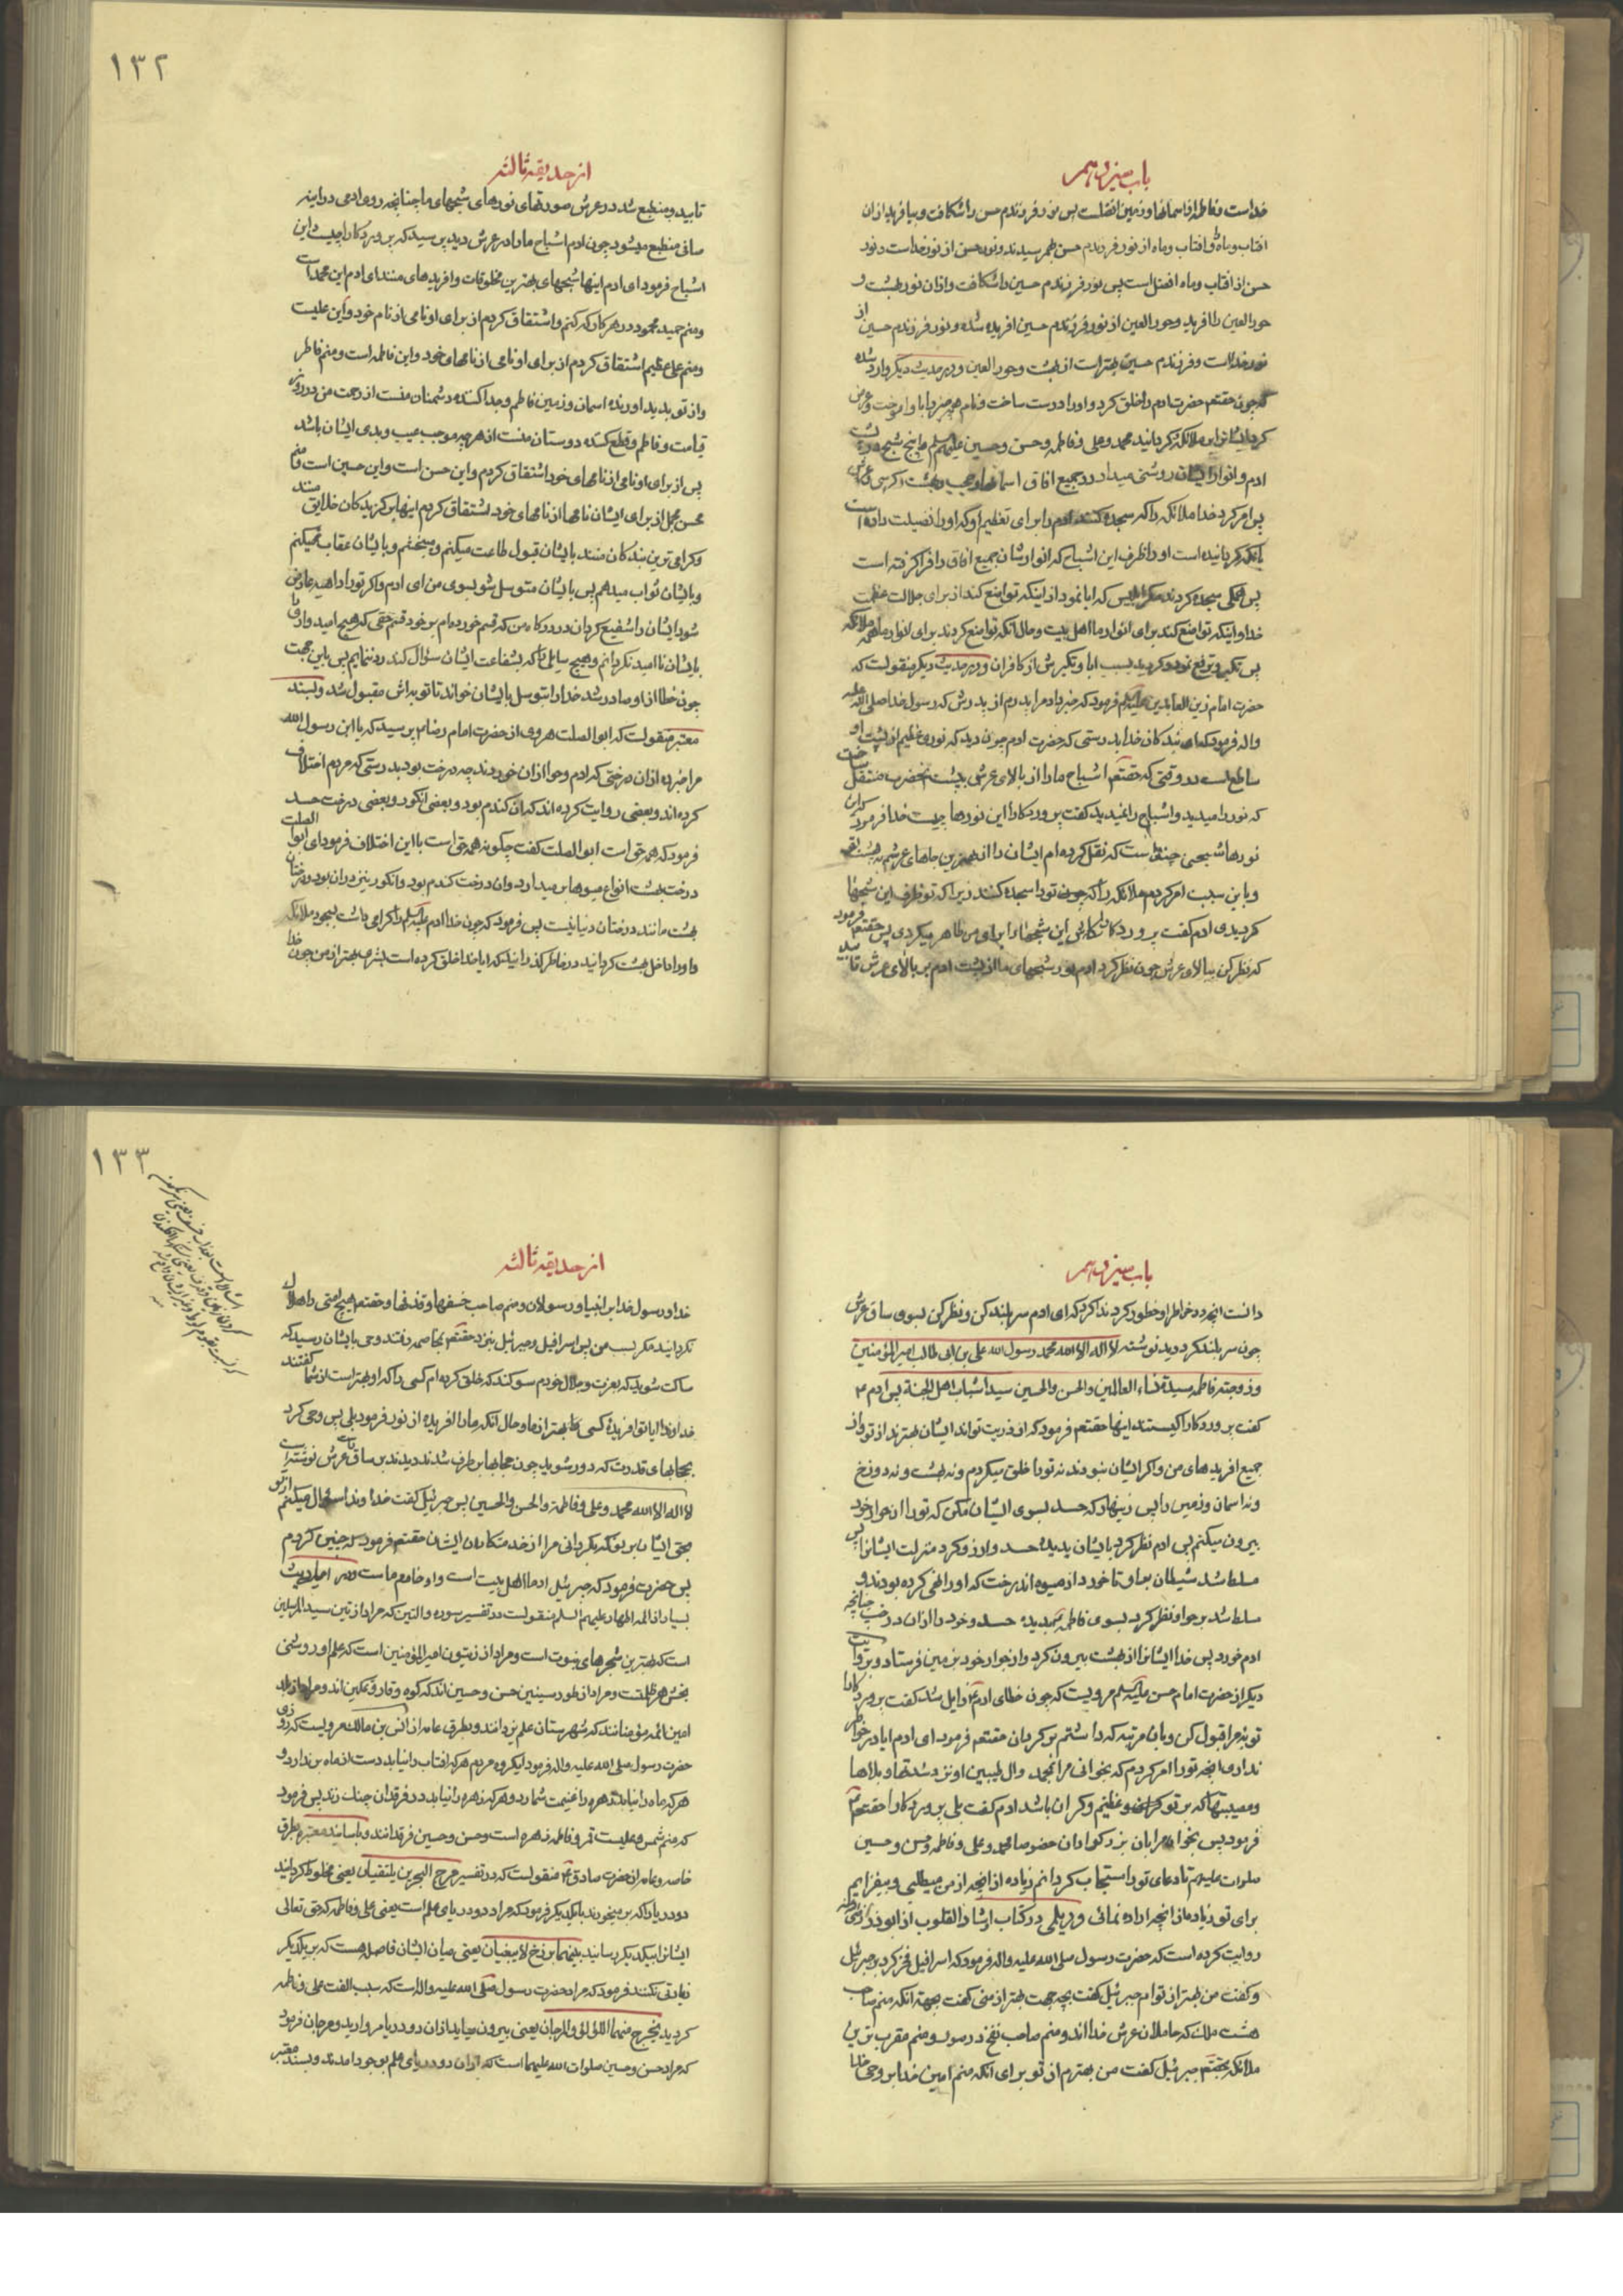 باب سیزدهم
خداست و فاطمه از اسمانها و زمین افضلست پس نور فرزندم حسن را شکافت و بیافرید ازان
افتاب و ماه و افتاب و ماه از نور فرزندم حسن بهم رسیدند و نور حسن از نور خداست و نور
حسن از افتاب و ماه افضل است پس نور فرزندم حسین را شکافت و ازان نور بهشت و
حور العین را افرید و حور العین از نور فرزندم حسین افریده شده و نور فرزندم حسین از
نور خداست و فرزندم حسین بهتر است از بهشت و حور العین و در حدیث دیگر وارد شده
که چون حقتعالی حضرت ادم را خلق کرد و او را درست ساخت و نام همه چیز را باو اموخت و
ادم و انوار ایشان روشنی میداد در جمیع افاق اسمانها و حجب و بهشت و کرسی و عرش
پس امر کرد خدا ملائکه را که سجده کنند ادم را برای تعظیم او که او را فضیلت داده است
بانکه گردانیده است او را ظرف این اشباح که انوار ایشان جمیع افاق را فرا گرفته است
پس همکی سجده کردند مگر ابلیس که ابا نمود از اینکه تواضع کند از برای جلالت عظمت
خدا و اینکه تواضع کند برای انوار ما اهل بیت و حال انکه تواضع کردند برای انوار ما همه ملائکه
پس تکبر و ترفع نمود و گردید بسبب ابا و تکبرش از کافران و در حدیث دیگر منقولست که
حضرت امام زین العابدین علیه السلم فرمود که خبر داد مرا پدرم از پدرش که رسول خدا صلی الله علیه
واله فرمود که ای بندکان خدا بدرستی که حضرت ادم چون دید که نوری عظیم از پشت او
ساطع است در وقتی که حقتعالی اشباح ما را از بالای عرش بپشت انحضرت منتقل ساخت
که نور را میدید و اشباح را نمیدید گفت پروردکارا این نورها چیست خدا فرمود که این
نورها شبحی چند است که نقل کرده ام ایشان را از بهترین جاهای عرشم به پشت تو
و باین سبب امر کردم ملائکه را که تورا سجده کنند زیرا که تو ظرف این شبحها
گردیدی ادم گفت پروردکارا کاش این شبحها را برای من ظاهر میکردی پس حقتعالی فرمود
که نظر کن ببالای عرش چون نظر کرد ادم نور شبحهای ما از پشت ادم بر بالای عرش تابید
۱۳۲
از حدیقه ثالثه
تابید و منطبع شد در عرش صورتهای نورهای شبحهای ما چنانچه روی ادمی در اینه
صافی منطبع میشود چون ادم اشباح ما را در عرش دید پرسید که پروردکارا چیست این
اشباح فرمود ای ادم اینها شبحهای بهترین مخلوقات و افریدهای منند ای ادم این محمد است
و منم حمید محمود در هر کار که کنم و اشتقاق کردم از برای او نامی از نام خود و این علیست
و منم علی عظیم اشتقاق کردم از برای او نامی از نامهای خود و این فاطمه است و منم فاطر
و از نو پدید اورنده اسمان و زمین فاطم و جدا کننده دشمنان منست از رحمت من در روز
قیامت و فاطم و قطع کننده دوستان منست از هر چه موجب عیب و بدی ایشان باشد
پس از برای او نامی از نامهای خود اشتقاق کردم و این حسن است و این حسین است و منم
محسن مجمل از برای ایشان نامها از نامهای خود اشتقاق کردم اینها برگزیدکان خلایق منند
و گرامی ترین بندکان منند بایشان قبول طاعت میکنم و میبخشم و بایشان عقاب میکنم
و بایشان ثواب میدهم پس بایشان متوسل شو بسوی من ای ادم و اگر تورا داهیه عارض
شود ایشان را شفیع گردان در درکاه من که قسم خورده ام بر خود قسم حقی که هیچ امیدواری
بایشان نا امید نگردانم و هیچ سایلی را که بشفاعت ایشان سؤال کند رد ننمایم پس باین جهت
چون خطا از او صادر شد خدا را بتوسل بایشان خواند تا توبه اش مقبول شد و بسند
معتبر منقولست که ابو الصلت هروی از حضرت امام رضا پرسید که یا ابن رسول الله
مرا خبر ده از ان درختی که ادم و حوا ازان خوردند چه درخت بود بدرستی که مردم اختلاف
کرده اند و بعضی روایت کرده اند که ان کندم بود و بعضی انکور و بعضی درخت حسد
فرمود که همه حق است ابو الصلت گفت چگونه همه حق است با این اختلاف فرمود ای ابوا الصلت
درخت بهشت انواع میوها بر میدارد و ان درخت کندم بود و انکور نیز دران بود و درختان
بهشت مانند درختان دنیا نیست پس فرمود که چون خدا ادم علیه السلم را گرامی داشت بسجود ملائکه
و او را داخل بهشت گردانید در خاطر گذرانید که ایا خدا خلق کرده است بشری بهتر از من چون خدا
باب سیزدهم
دانست انچه در خاطر او خطور کرد ندا کرد که ای ادم سر بلند کن و نظر کن بسوی ساق عرش
چون سر بلند کرد دید نوشته لا اله الا الله محمد رسول الله علی بن ابی طالب امیر المؤمنین
و زوجته فاطمه سیدة نساء العالمین و الحسن والحسین سیدا شباب اهل الجنة پس ادم ۴
گفت پروردکارا کیستند اینها حقتعالی فرمود که از ذریت تواند ایشان بهترند از تو و از
جمیع افریدهای من و اگر ایشان نبودند نه تورا خلق میکردم و نه بهشت و نه دوزخ
و نه اسمان و زمین را پس زینهار که حسد بسوی ایشان مکن که تورا از جوار خود
بیرون میکنم پس ادم نظر کرد بایشان بدیده حسد و ارزو کرد منزلت ایشانرا پس
مسلط شد شیطان بر او تا خورد از میوه ان درخت که او را نهی کرده بودند و
مسلط شد بر حوا و نظر کرد بسوی فاطمه بدیده حسد و خورد از ان درخت چنانچه
ادم خورد پس خدا ایشانرا از بهشت بیرون کرد و از جوار خود بزمین فرستاد و بروایت
دیگر از حضرت امام حسن علیه السلم مرویست که چون خطای ادم زایل شد گفت پروردکارا
توبه مرا قبول کن و بان مرتبه که داشتم برگردان حقتعالی فرمود ای ادم ایا در خواطر
نداری انچه تورا امر کردم که بخوانی مرا بمحمد وال طیبین او نزد شدتها و بلاها
و مصیبتها که بر تو گران و عظیم باشد ادم گفت بلی پروردکارا حقتعالی
فرمود پس بخوان مرا بان بزرکواران خصوصا محمد و علی و فاطمه و حسن و حسین
صلوات علیهم تا دعای تورا مستجاب گردانم زیاده از انچه از من میطلبی و بیفزایم
برای تو زیاده از انچه اراده نمائی و دیلمی در کتاب ارشاد القلوب از ابوذر
روایت کرده است که حضرت رسول صلی الله علیه واله فرمود که اسرافیل فخر کرد بر جبرئیل
و گفت من بهتر از توام جبرئیل گفت بچه جهت بهتر از منی گفت بجهة انکه منم صاحب
هشت ملک که حاملان عرش خدا اند و منم صاحب نفخ در صور و منم مقرب ترین
ملائکه بحقتعالی جبرئیل گفت من بهترم از تو برای انکه منم امین خدا بر وحی خدا
۱۳۳
از حدیقه ثالثه
خدا و رسول خدا بر انبیا و رسولان و منم صاحب خسفها و قذفها و حقتعالی هیچ امتی را هلاک
نگردانید مگر بسبب من پس اسرافیل و جبرئیل بنزد حقتعالی بمخاصمه رفتند وحی بایشان رسید که
ساکت شوید که بعزت و جلال خودم سوکند که خلق کرده ام کسی را که او بهتر است از شما گفتند
خداوندا ایا تو افریده کسی را که بهتر از ما و حال انکه ما را افریده از نور فرمود بلی پس وحی کرد
بحجابهای قدرت که دور شوید چون حجابها برطرف شدند دیدند بر ساق عرش نوشته است
لا اله الا الله محمد و علی و فاطمة و الحسن والحسین پس جبرئیل گفت خداوندا سؤال میکنم از تو
بحق ایشان بر تو که بگردانی مرا از خدمتکاران ایشان حقتعالی فرمود که چنین کردم
پس حضرت فرمود که جبرئیل از ما اهل بیت است و او خادم ماست و در احادیث
بسیار از ائمه اطهار علیهم السلم منقولست در تفسیر سوره والتین که مراد از تین سید المرسلین
است که بهترین شجرهای نبوت است و مراد از زیتون امیر المؤمنین است که علم او روشنی
بخش هر ظلمتست و مراد از طور سینین حسن و حسین اند که کوه وقار و تمکین اند و مراد از بلد
امین ائمه مؤمنانند که شهرستان علم یزدانند و بطرق عامه از انس بن مالک مرویست که روزی
حضرت رسول صلی الله علیه واله فرمود ایگروه مردم هر که افتاب را نیابد دست از ماه بر ندارد و
هر که ماه را نیابد زهره را غنیمت شمارد و هر که زهره را نیابد در فرقدان چنک زند پس فرمود
که منم شمس و علیست قمر و فاطمه زهره است و حسن و حسین فرقدانند و باسانید معتبره بطرق
خاصه و عامه از حضرت صادق ۴ منقولست که در تفسیر مرج البحرین یلتقیان یعنی مخلوط گردانید
دو دریا را که بر میخورند بایکدیگر فرمود که مراد دو دریای علم است یعنی علی و فاطمه که حق تعالی
ایشانرا بیکدیگر رسانید بینهما برزخ لا یبغیان یعنی میان ایشان فاصله هست که بر یکدیگر
زیادتی نکنند فرمود که مراد حضرت رسول صلی الله علیه واله است که سبب الفت علی و فاطمه
گردید یخرج منهما اللؤلؤ والمرجان یعنی بیرون میاید ازان دو دریا مروارید و مرجان فرمود
که مراد حسن و حسین صلوات الله علیهما است که ازان دو دریای علم بوجود امدند و بسند معتبر